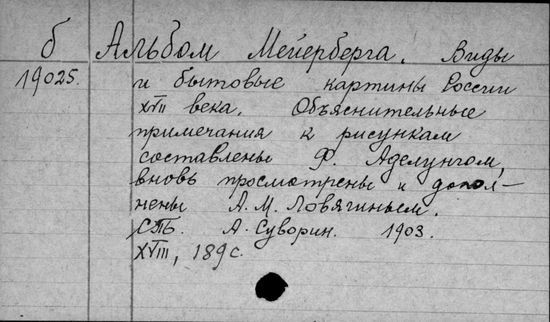 б Альбом Мейерберга. Виды
19025. и бытовые картины России
XVII века. Объяснительные
примечания к рисункам
составлены Ф. Аделунгом,
вновь просмотрены и допол-
нены А. М. Ловягиным.
СПб. А. Суворин. 1903.
XVIII, 189 с.